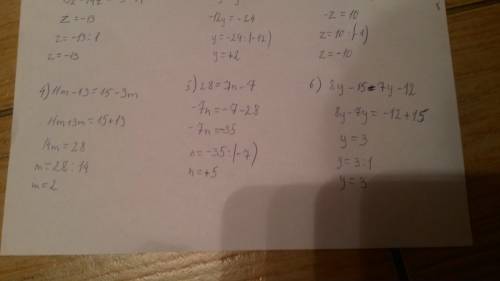 z = -13
z = -13 : 1
z = -13
-12y = -24
y = -24 : (-12)
y = +2
-z = 10
z = 10 : (-1)
z = -10
4) 11m - 13 = 15 - 3m
11m + 3m = 15 + 13
14m = 28
m = 28 : 14
m = 2
5) 28 = 7n - 7
-7n = -7 - 28
-7n = -35
n = -35 : (-7)
n = +5
6) 8y - 15 = 7y - 12
8y - 7y = -12 + 15
y = 3
y = 3 : 1
y = 3